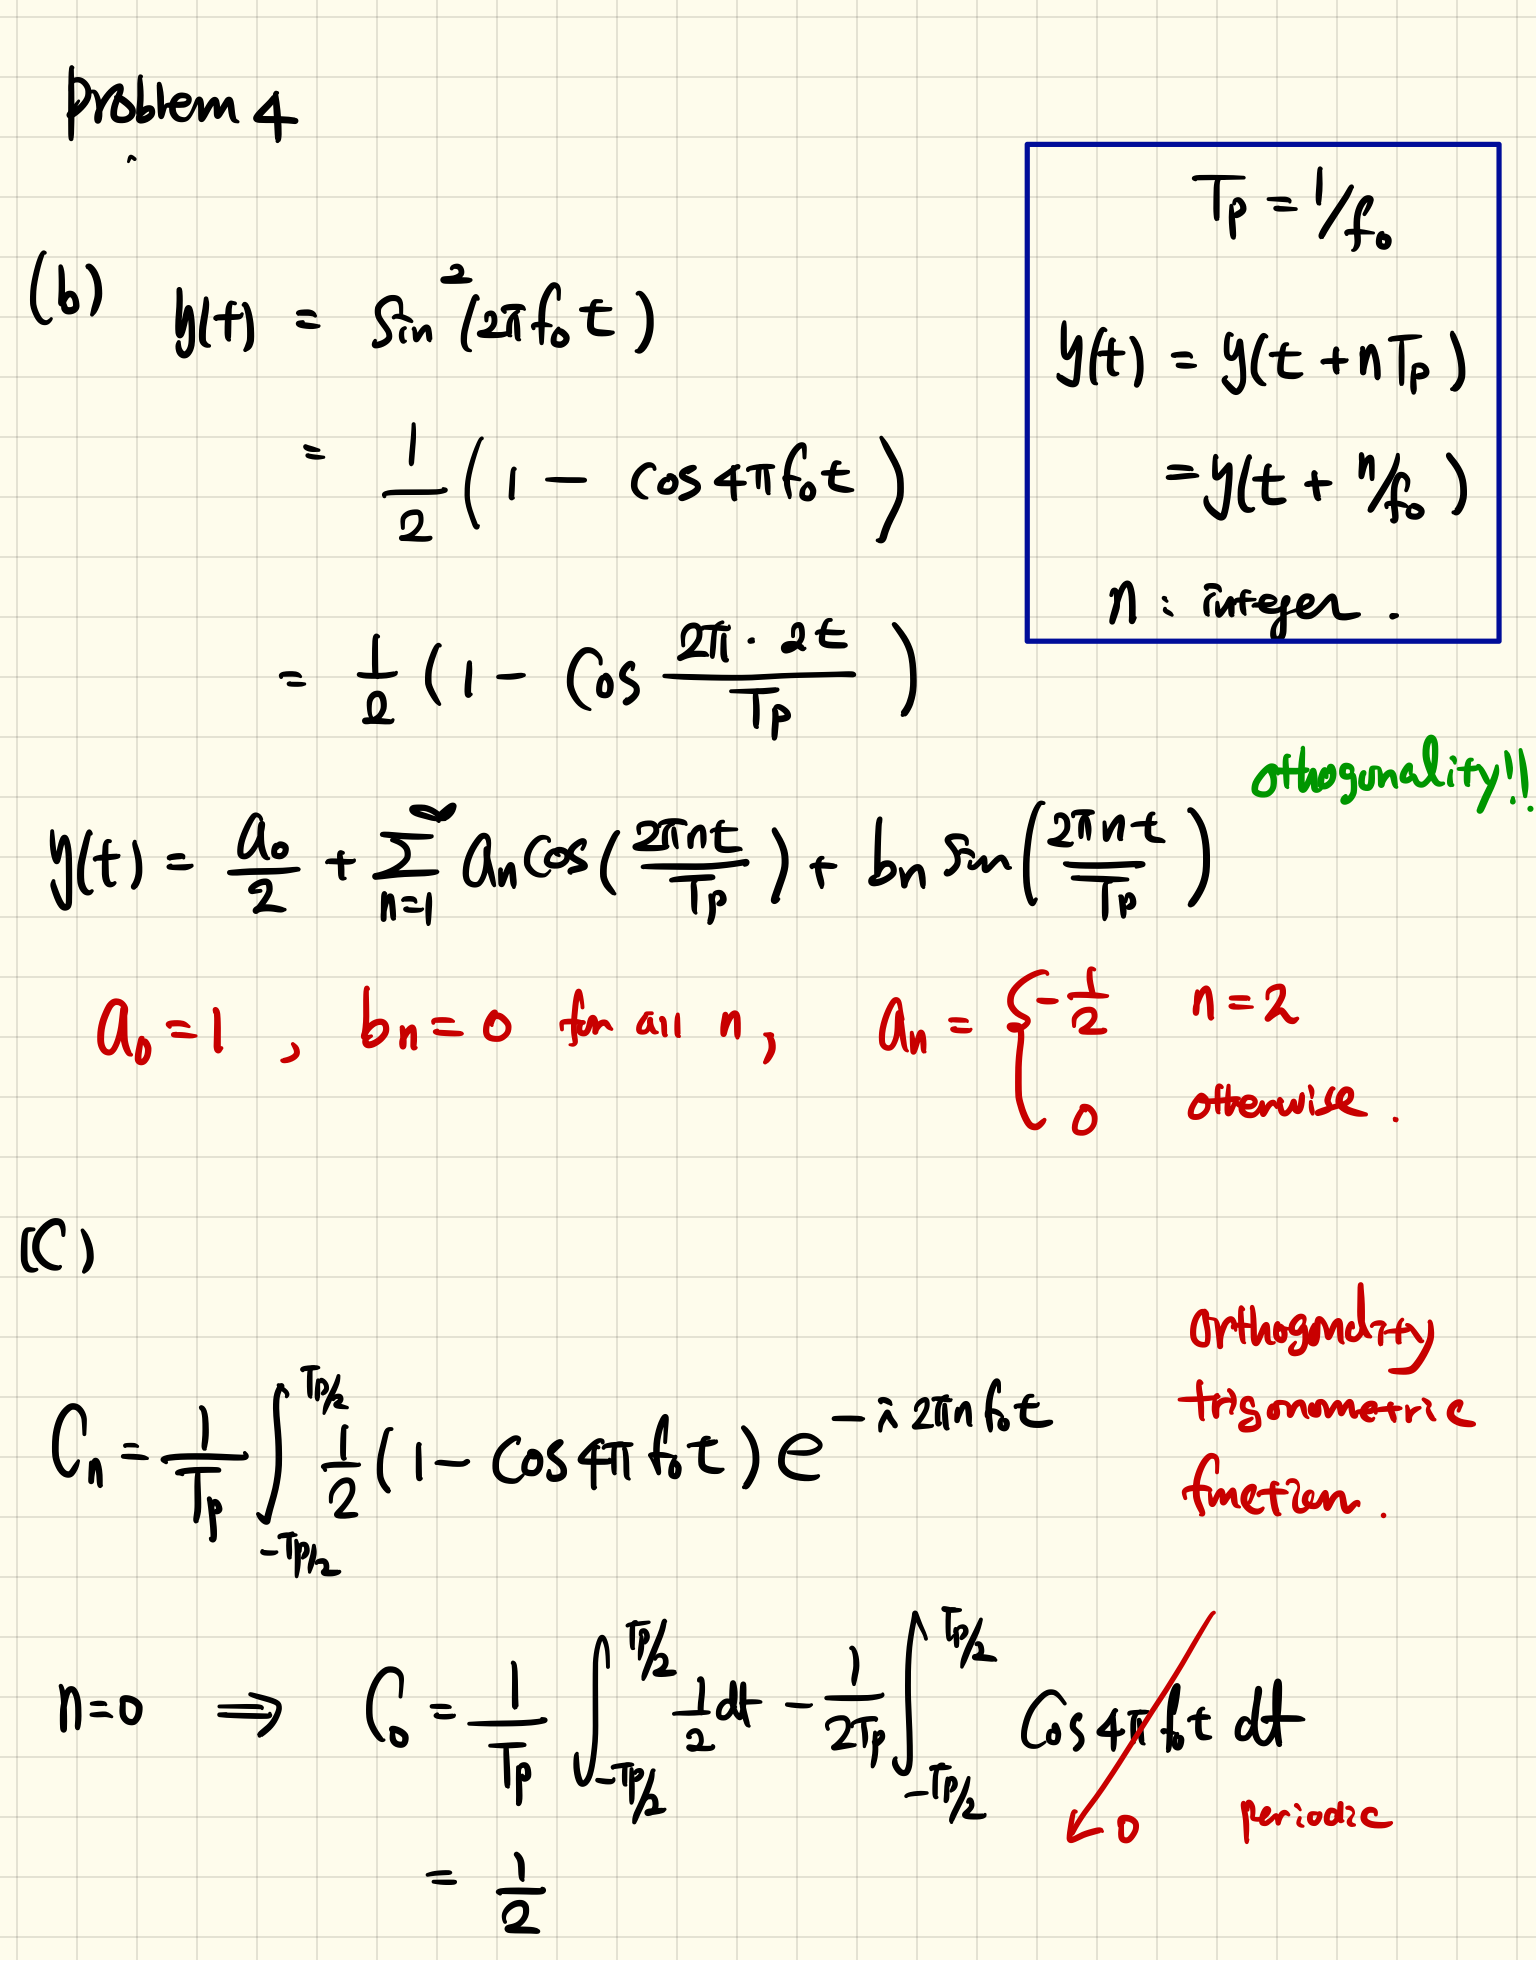 Problem 4
T_p = 1/f_0
(b) y(t) = sin^2(2πf_0t)
y(t) = y(t + nT_p)
= 1/2 (1 - cos4πf_0t)
= y(t + n/f_0)
n : integer .
= 1/2 (1 - cos (2π · 2t)/T_p )
othogonality!!
y(t) = a_0/2 + ∑_{n=1}^{∞} a_n cos(2πnt/T_p) + b_n sin(2πnt/T_p)
a_0 = 1 , b_n = 0 for all n, a_n = { -1/2 n = 2
0 otherwise .
(C)
orthogonality
trigonometric
function .
C_n = 1/T_p ∫_{-T_p/2}^{T_p/2} 1/2 (1 - cos4πf_0t) e^{-i2πnf_0t}
n=0 ⟹ C_0 = 1/T_p ∫_{-T_p/2}^{T_p/2} 1/2 dt - 1/2T_p ∫_{-T_p/2}^{T_p/2} cos4πf_0t dt
0 periodic
= 1/2